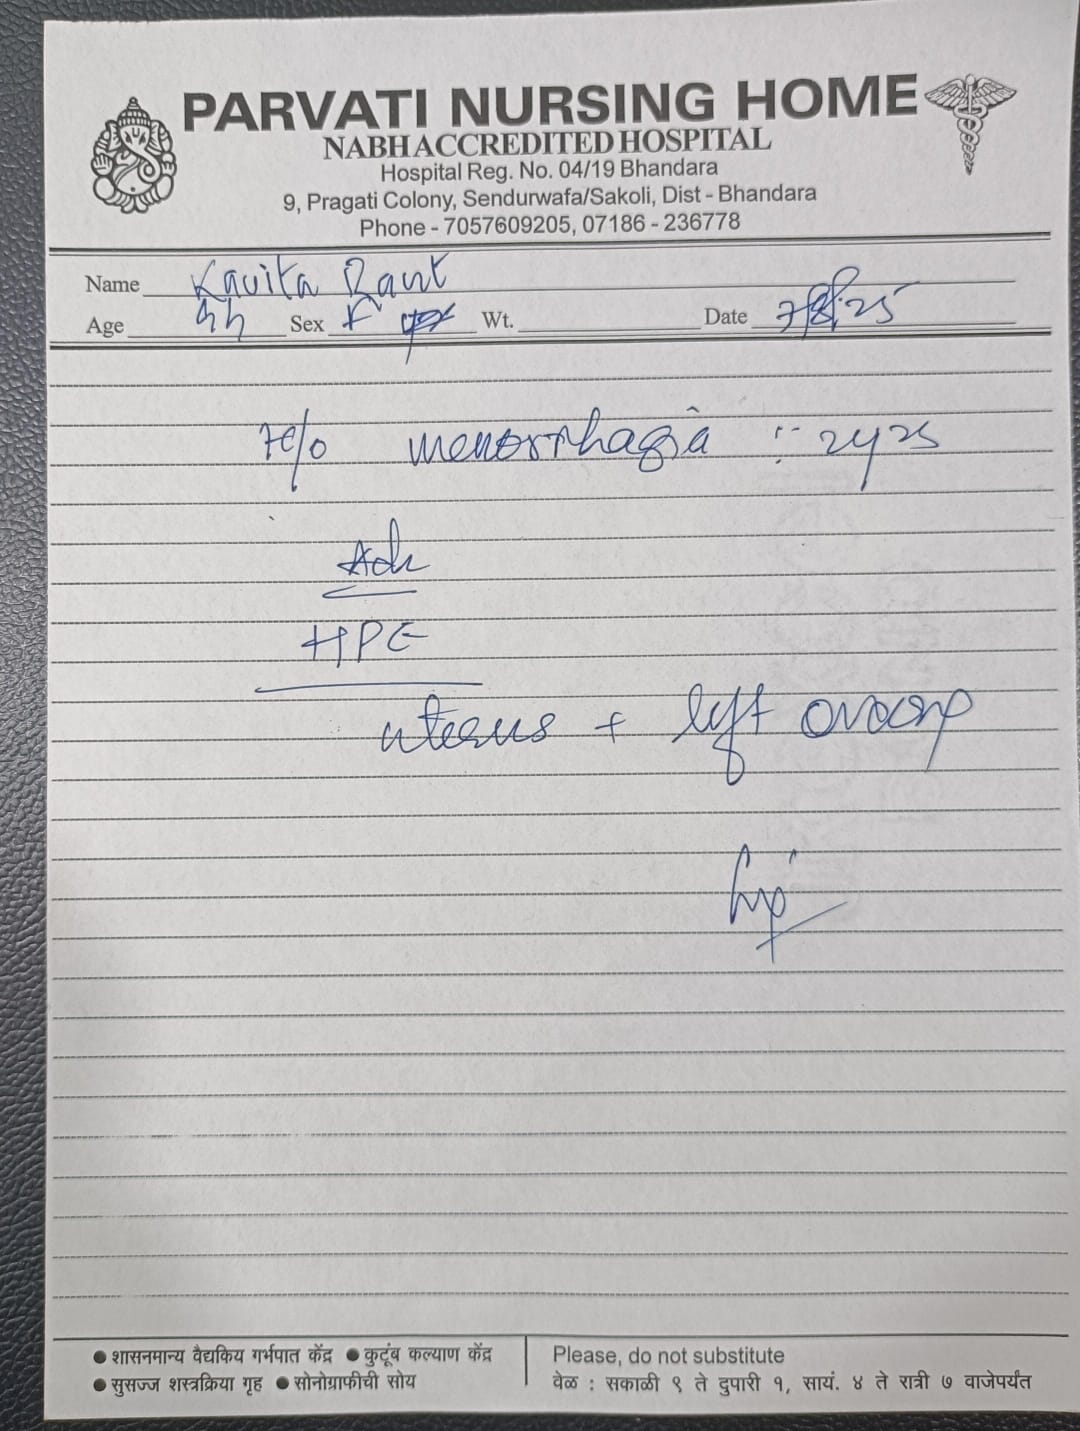 PARVATI NURSING HOME
NABH ACCREDITED HOSPITAL
Hospital Reg. No. 04/19 Bhandara
9, Pragati Colony, Sendurwafa/Sakoli, Dist - Bhandara
Phone - 7057609205, 07186 - 236778
Name Kavita Raut
Age Sex F Wt. Date 7/8/25
H/o menorrhagia : 2yrs
Adv
HPE
uterus + left ovary
● शासनमान्य वैद्यकिय गर्भपात केंद्र ● कुटूंब कल्याण केंद्र
● सुसज्ज शस्त्रक्रिया गृह ● सोनोग्राफीची सोय
Please, do not substitute
वेळ : सकाळी ९ ते दुपारी १, सायं. ४ ते रात्री ७ वाजेपर्यंत